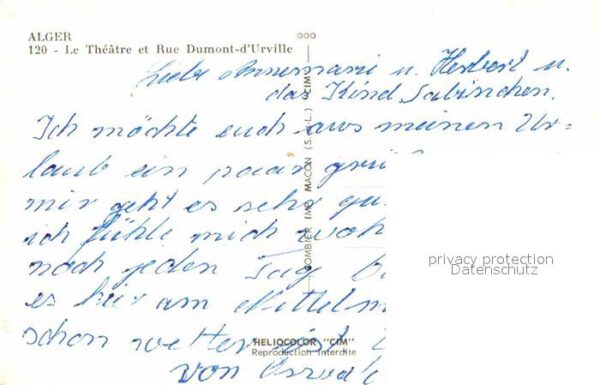 ALGER
120 - Le Théâtre et Rue Dumont-d'Urville
Liebe Annemarie u. Herbert u.
das Kind Sabinchen.
Ich möchte euch aus meinen Ur-
laub ein paar grü
mir geht es sehr gu
ich fühle mich woh
noch jeden Tag b
es hier am Mittelm
schon wetter ist
von
COMBIER IMP. MACON (S.-&-L.) "CIM"
privacy protection
Datenschutz
HELIOCOLOR "CIM"
Reproduction Interdite